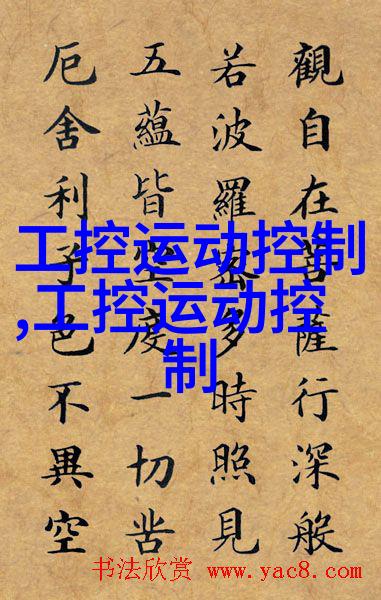 觀自在菩薩行深般
若波羅多時照見
五蘊皆空度一切苦
厄舍利子色不異空
工控运动控制
,工控运动控
制
书法欣赏 www.yac8.com